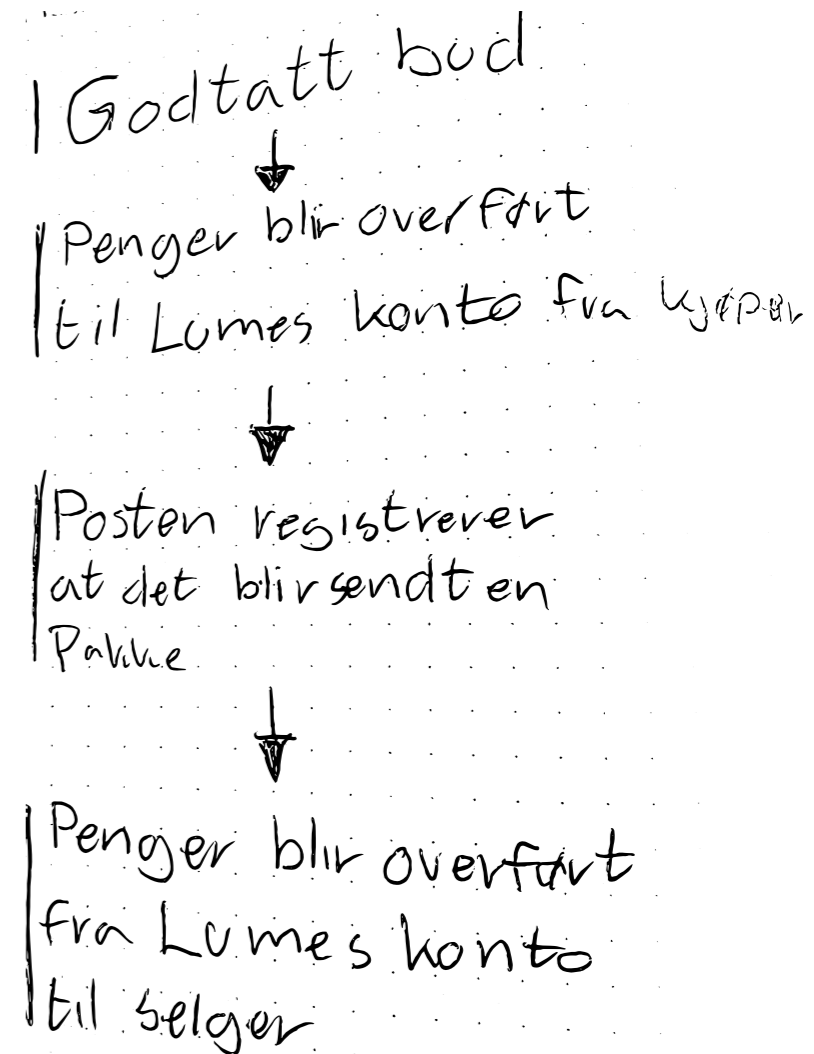 Godtatt bud
Penger blir overført
til Lumes konto fra kjøper
Posten registrerer
at det blir sendt en
Pakke
Penger blir overført
fra Lumes konto
til selger